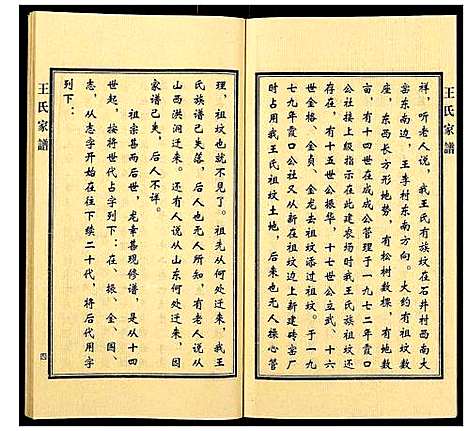 王氏家譜
祥，听老人说，我王氏有族坟在石井村西南大
窑东南边，王李村东南方向。大约有祖坟数
座，东西长方形地势，有松树数棵，有地数
亩，有十四世在成成公管理于一九七二年霞口
公社接上级指示在此建农场时我王氏族祖坟还
存在，有十五世公振华，十七世公立武、十六
世金格、金贞、金龙去祖坟添过祖坟。于一九
七九年霞口公社又从新在祖坟边上新建砖窑厂
时占用我王氏祖坟土地，后来也无人操心管
理，祖坟也就不见了。祖先从何处迁来，我王
氏族谱己失落，后人也无人所知，有老人说从
山西洪洞迁来。还有人说从山东何处迁来，因
家谱己失，后人不详。
祖宗甚而后世，龙幸甚现修谱，是从十四
世起，按将世代占字列下：在、振、金、国、
志，从志字开始在往下续二十代，将后代用字
列下：
王氏家譜
四